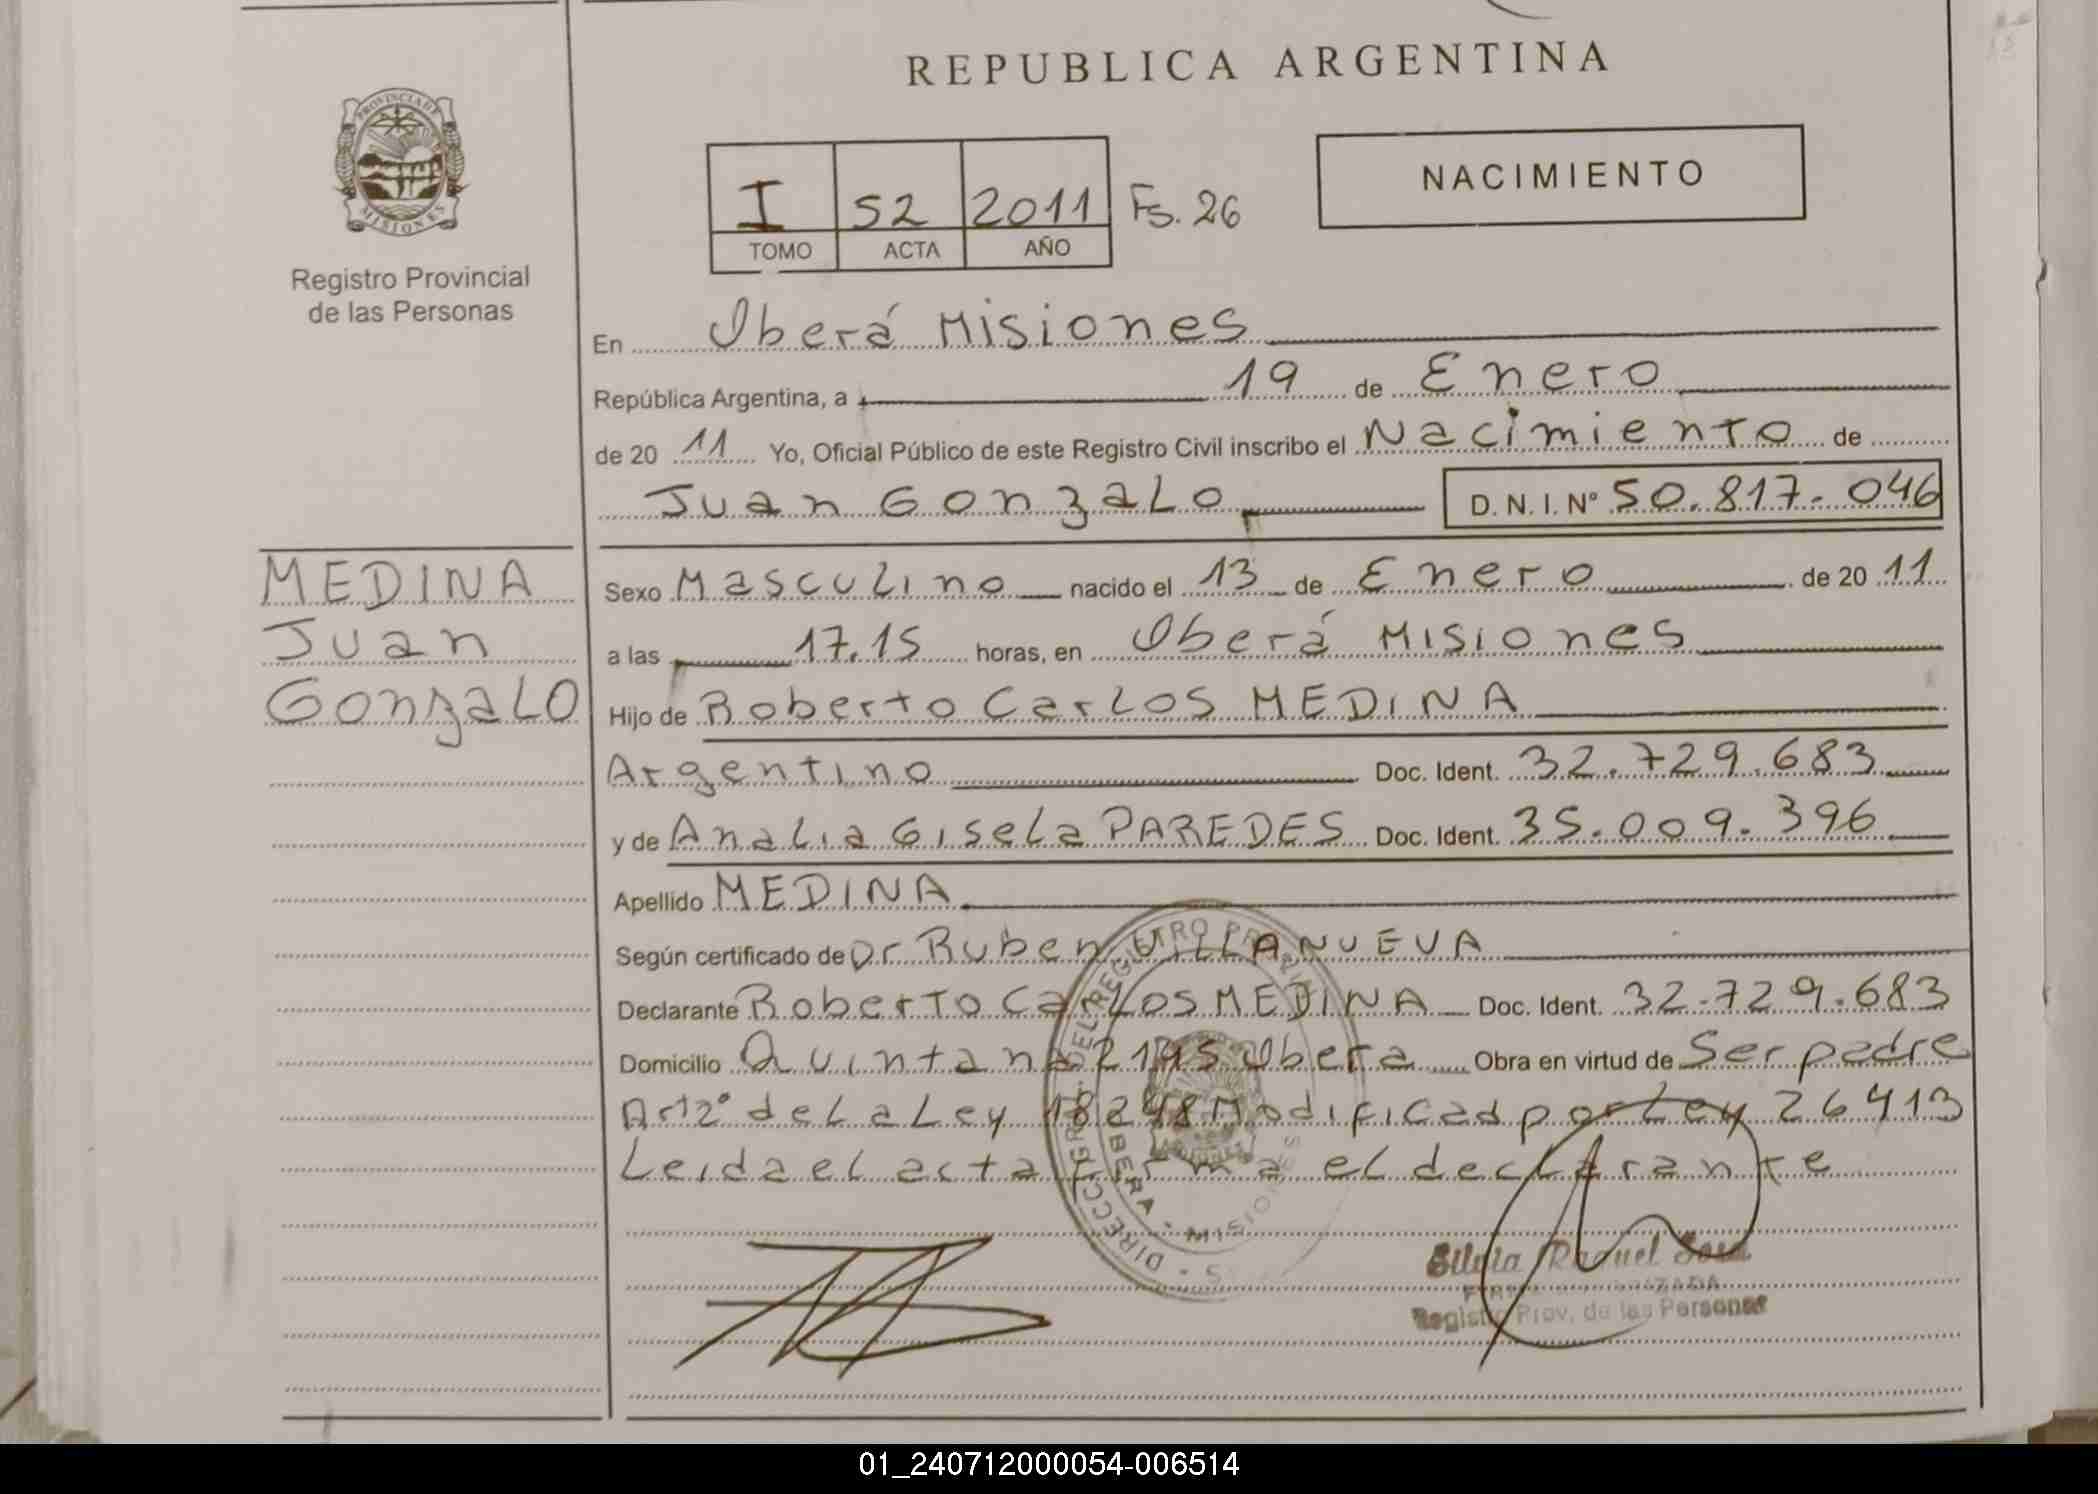 REPUBLICA ARGENTINA
PROVINCIA DE
MISIONES
Registro Provincial
de las Personas
I 52 2011 Fs. 26
TOMO ACTA AÑO
NACIMIENTO
En Oberá Misiones
República Argentina, a 19 de Enero
de 20 11 Yo, Oficial Público de este Registro Civil inscribo el Nacimiento de
Juan Gonzalo D.N.I. Nº 50.817.046
MEDINA
Juan
Gonzalo
Sexo Masculino nacido el 13 de Enero de 20 11
a las 17.15 horas, en Oberá Misiones
Hijo de Roberto Carlos MEDINA
Argentino Doc. Ident. 32.729.683
y de Analia Gisela PAREDES Doc. Ident. 35.009.396
Apellido MEDINA
Según certificado de Dr Ruben VILLANUEVA
Declarante Roberto Carlos MEDINA Doc. Ident. 32.729.683
Domicilio Quintana Obera Obra en virtud de Ser padre
Art 2° de La Ley 18248 Modificad por Ley 26413
Leida el acta firma el declarante
DIRECC. GRAL. DEL REGISTRO PROV
OBERA - MISIONES
Silvia Raquel Sosa
Registro Prov. de las Personas
01_240712000054-006514